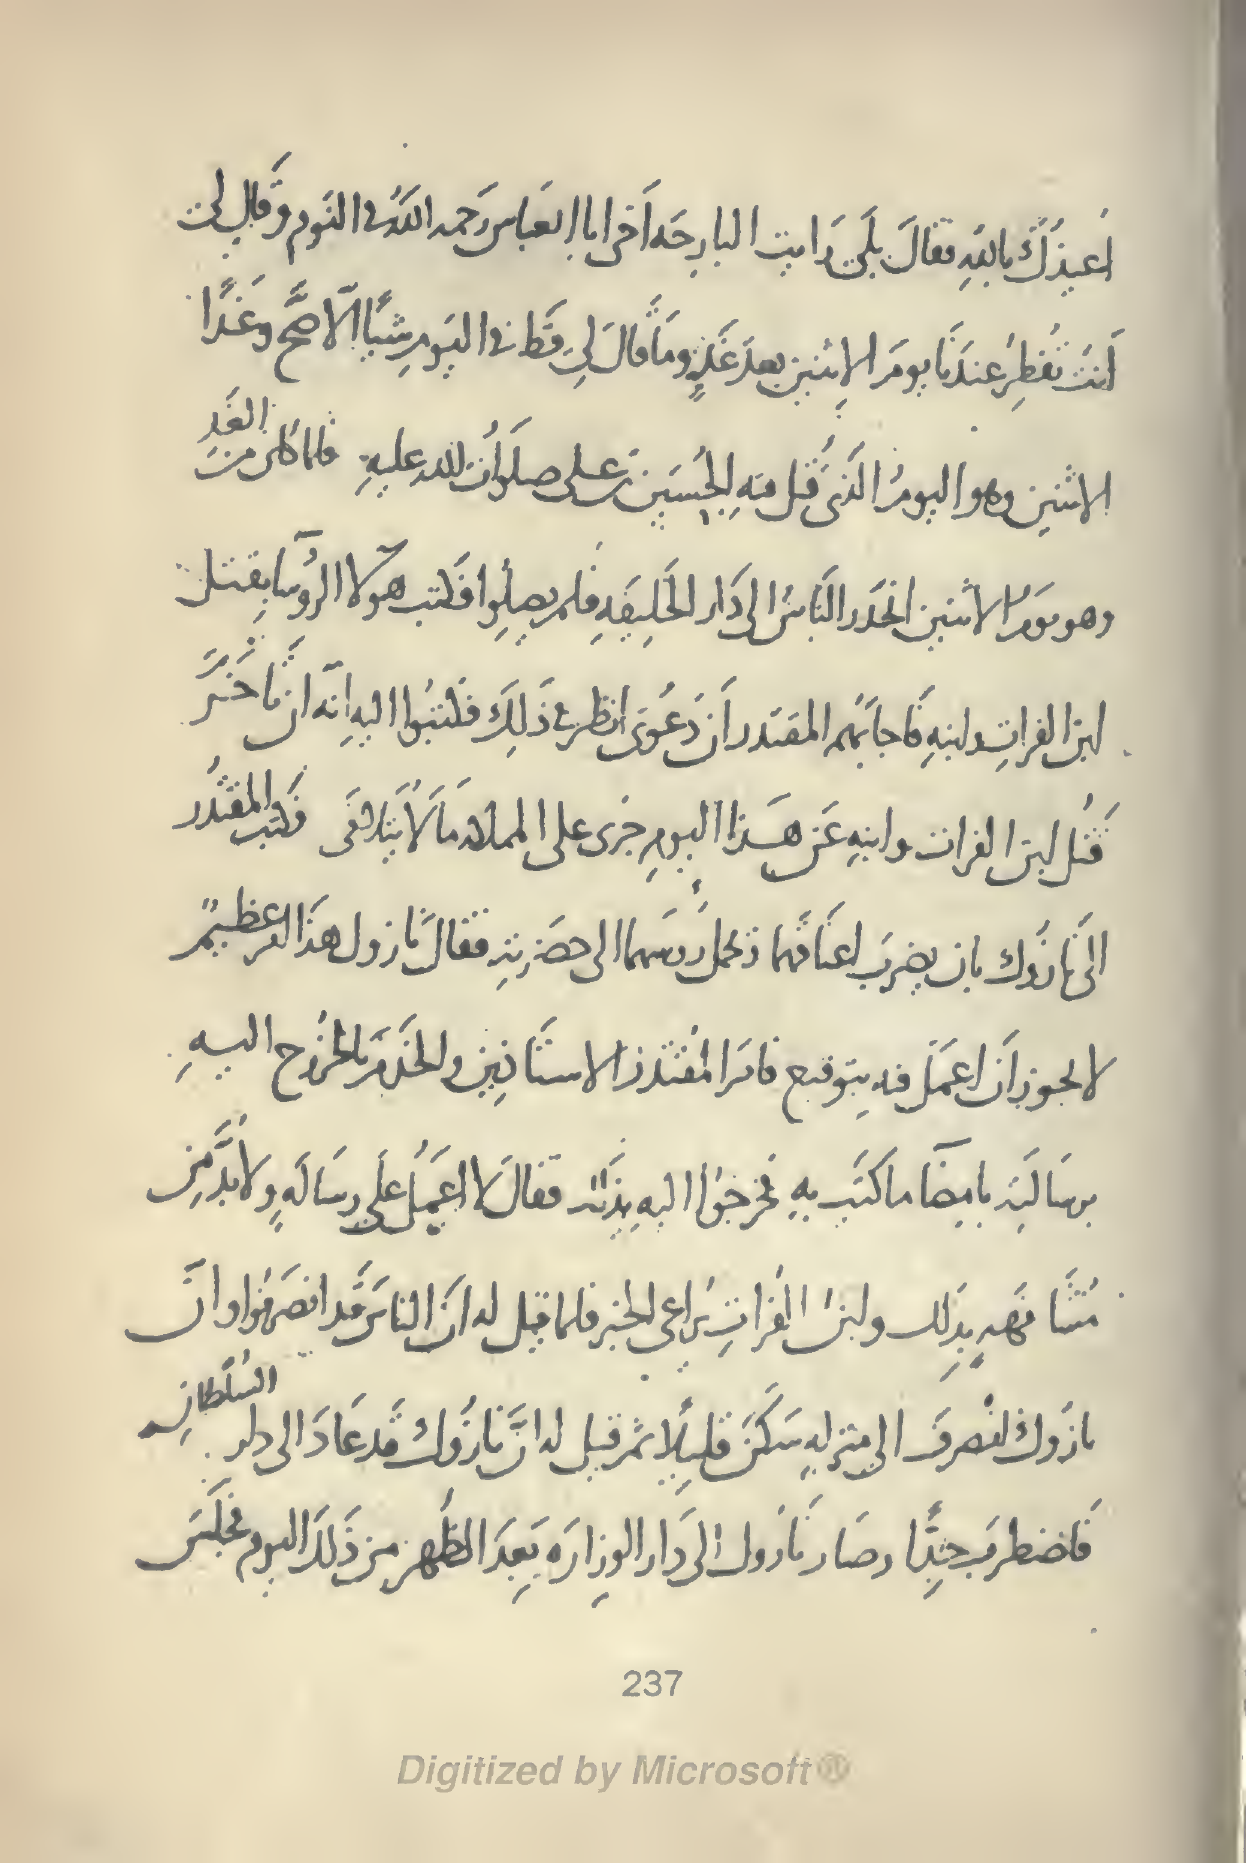 أُعِيذُكَ بالله فقالَ بلَى رَايت البارِحَه أخى ابا العَباس رَحمه اللهُ فى النَوم وَقال لى
أنتَ تُفطِرُ عندَنَا يومَ الاِثنين بعدَ غَدٍ ومَا قالَ لِى قَط فى اليَومِ شَيًا الّا صَحَّ وغَدًا
الاثنين وهو اليومُ الَّذى قُتل فيهِ الحُسَين بن على صلَواتُ الله عليهِ فلما كان من الغَدِ
وهو يَومُ الاثنين انحَدَر النَاسُ الى دَار الخَلِيفَهِ فلم يصِلُوا فكَتب هولآ الرُوسآ بِقتل
ابن الفراتِ وابنهِ فَاجابَهُم المقتَدر أن دَعُونى انظر فى ذَلِكَ فكتبُوا اليهِ انّه ان تأخَّرَ
قَتل ابن الفرات وابنهِ عَن هَذا اليومِ جَرى على المملكه مَا لَا يُتلافَى فكتب المُقتَدر
الى نَازُوك بان يضربَ اعنَاقَهما وتحمل روسَهما الى حضَرتِه فقالَ نازوك هذَا امر عَظيمٌ
لا يجوز أن اعمَل فيه بِتوقيع فامرَ المُقتَدر الاستَاذِين والخَدَم بالخُروج اليهِ
بِرسَالتِه بامضَآ ما كَتَب بهِ فخرجُوا اليه بِذَلك فقالَ لا اعمَلُ على رِسَالهٍ ولا بُدَّ من
مُشَافَهَهٍ بِذَلِك وابنُ الفُراتِ يُراعى الخبر فلما قيل له انّ النَاسَ قَد انصَرفُوا وانّ
نازُوك انصرفَ الى منزلهِ سَكَنَ قَليلًا ثم قيل له انّ نازُوكَ قَد عَادَ الى دار السُلطانِ
فَاضطربَ جِدًّا وصَار نَازوك الى دَار الوِزارَه بَعِدَ الظُهرِ من ذَلكَ اليوم فجلَسَ
237
Digitized by Microsoft®